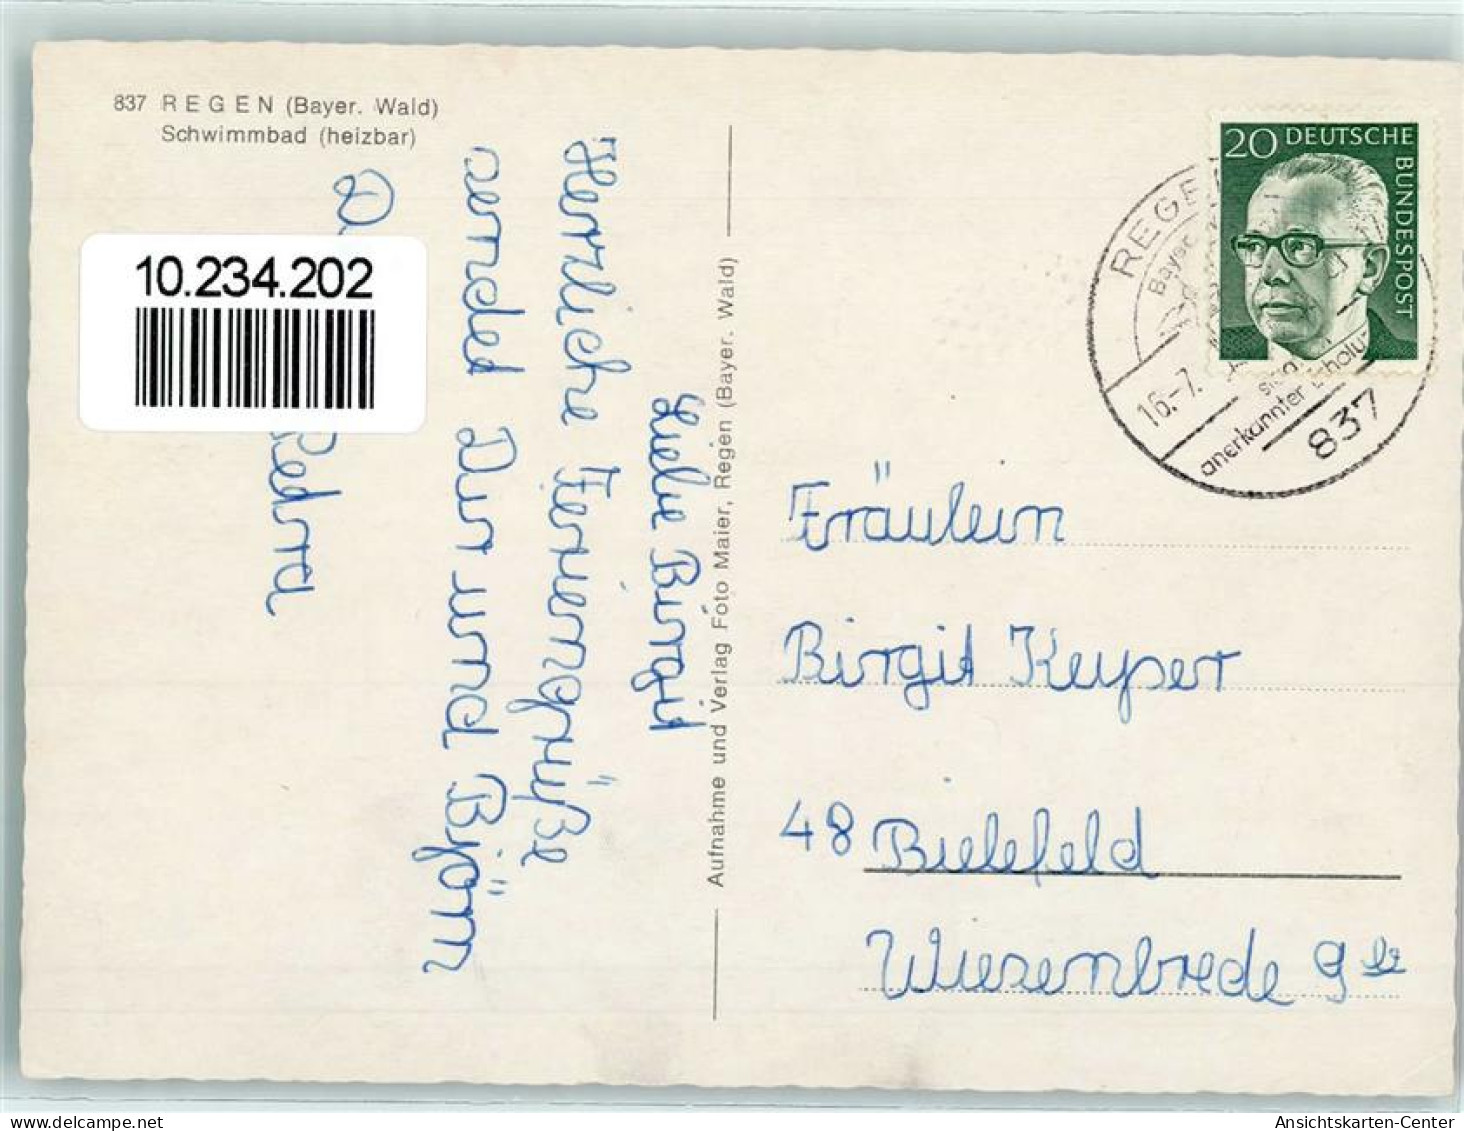 837 REGEN (Bayer. Wald)
Schwimmbad (heizbar)
10.234.202
Liebe Birgit
Herrliche Feriengrüße
sendet Dir und Björn
Petra
Aufnahme und Verlag Foto Maier, Regen (Bayer. Wald)
20 DEUTSCHE
BUNDESPOST
REGE
Bayer
16.-7.
anerkannter Erholu
837
Fräulein
Birgit Keyser
48 Bielefeld
Wiesenbrede 9
Ansichtskarten-Center